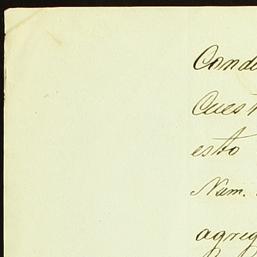 Conde
Cuest
esto
Num.
agreg